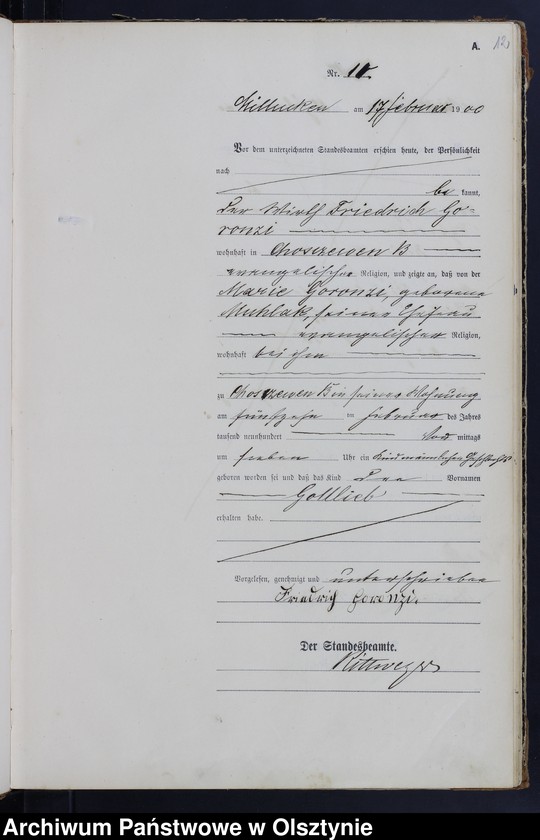 A. 12
Nr. 10.
am 17 Februar 1900
Vor dem unterzeichneten Standesbeamten erschien heute, der Persönlichkeit
nach
be kannt,
der Wirth Friedrich Go-
ronzi
wohnhaft in Choszewen B
evangelischer Religion, und zeigte an, daß von der
Marie Goronzi, geborene
Muhlak, seiner Ehefrau
evangelischer Religion,
wohnhaft bei ihm
zu Choszewen B in seiner Wohnung
am fünfzehn im Februar des Jahres
tausend neunhundert Vor mittags
um sieben Uhr ein Kind männlichen Geschlechts
geboren worden sei und daß das Kind den Vornamen
Gottlieb
erhalten habe.
Vorgelesen, genehmigt und unterschrieben
Friedrich Goronzi.
Der Standesbeamte.
Archiwum Państwowe w Olsztynie